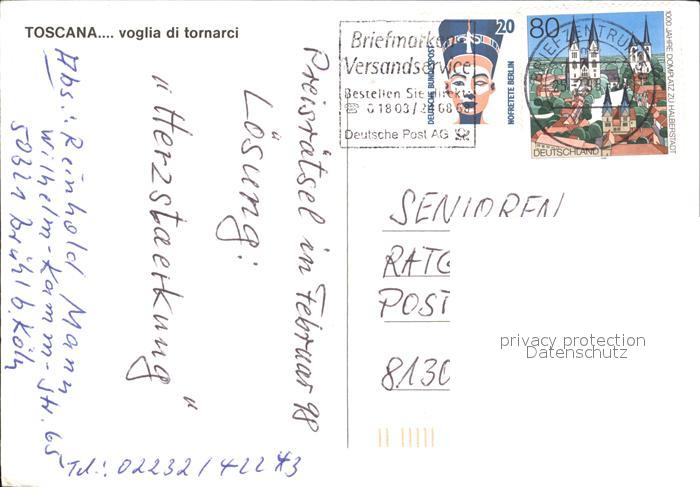 TOSCANA.... voglia di tornarci
Abs.: Reinhold Mann
Wilhelm-Kamm-Str. 65
50321 Brühl b. Köln
Tel.: 02232/42243
Preisrätsel in Februar 98
Lösung:
"Herzstaerkung"
Briefmarken
Versandservice
Bestellen Sie direkt
Deutsche Post AG
20
DEUTSCHE BUNDESPOST
NOFRETETE BERLIN
80
BRIEFZENTRUM
DEUTSCHLAND
1000 JAHRE DOMPLATZ ZU HALBERSTADT
SENIOREN
RATG
POST
8130
privacy protection
Datenschutz